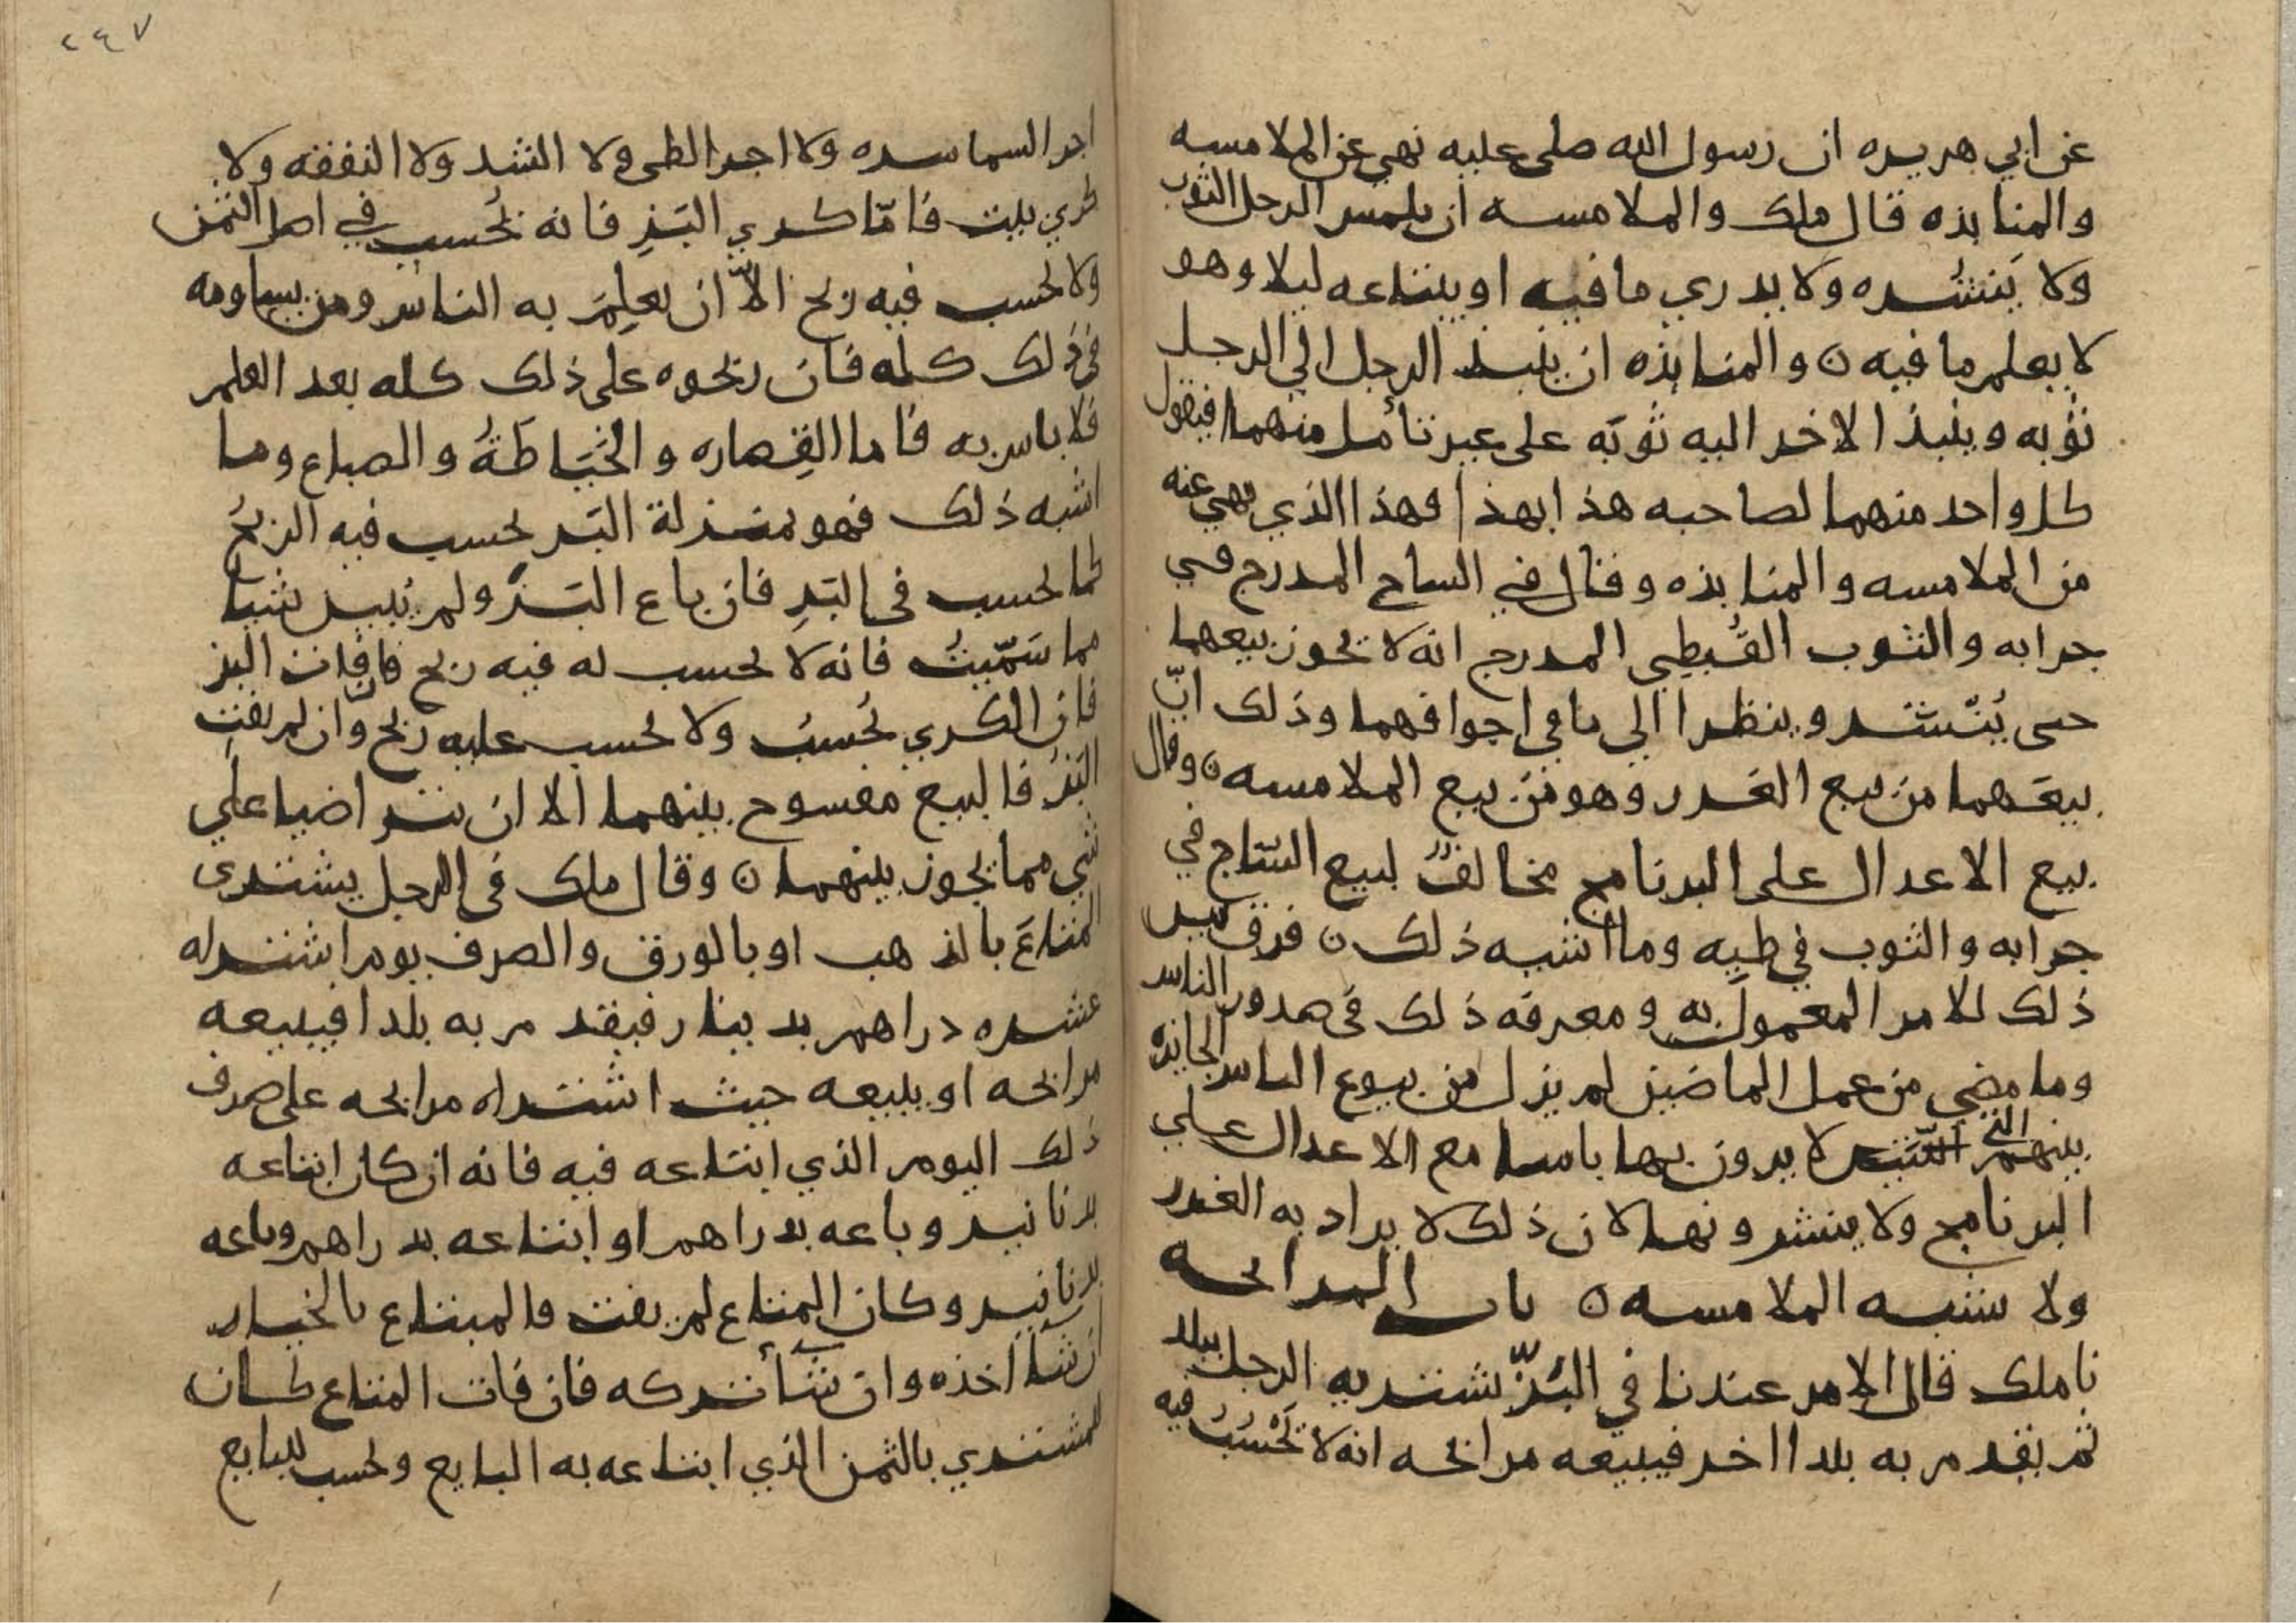 عن ابي هريره ان رسول الله صلى عليه نهى عن الملامسه
والمنابذه قال ملك والملامسه ان يلمس الرجل الثوب
ولا ينشره ولا يدري ما فيه او يبتاعه ليلا وهو
لا يعلم ما فيه ن والمنابذه ان ينبذ الرجل الي الرجل
ثوبه وينبذ الاخر اليه ثوبه على غير تأمل منهما فيقول
كل واحد منهما لصاحبه هذا بهذا فهذا الذي نهي عنه
من الملامسه والمنابذه وقال في الساج المدرج في
جرابه والثوب القُبطِي المدرج انه لا يجوز بيعهما
حتى يُنشر وينظرا الي ما في اجوافهما وذلك انّ
بيعَهما من بيع الغرر وهو من بيع الملامسه ن وقال
بيع الاعدال على البرنامج مخالفٌ لبيع الساج في
جرابه والثوب في طيِه وما اشبه ذلك ن فرق بين
ذلك للامر المعمول به ومعرفه ذلك في صدور الناس
وما مضى من عمل الماضين لم يزل من بيوع الناس الجايزه
بينهم التي لا يرون بها باسا مع الاعدال علي
البرنامج ولا ينشرونها لان ذلك لا يراد به الغرر
ولا يشبه الملامسه ن باب المرابحه
نا ملك قال الامر عندنا في البَزّ يشتريه الرجل ببلد
ثم يقدم به بلدا اخر فيبيعه مرابحه انه لا يُحسَبُ فيه
٢٤٧
اجر السماسره ولا اجر الطى ولا الشد ولا النفقه ولا
كري بيت فامّا كري البَزِ فانه يُحسب في اصل الثمن
ولا يحسب فيه ربح الاّ ان يعلِمَ به الناس ومن يساومه
في ذلك كله فان ربحوه على ذلك كله بعد العلم
فلا باس به فاما القِصاره والخيَاطةُ والصباغ وما
اشبه ذلك فهو بمنزلة البَز يحسب فيه الربحُ
كما يحسب في البَزِ فان باع البَز ولم يُبين شيا
مما سَمّيتُ فانه لا يحسب له فيه ربح فان فات البز
فان الكري يُحسبُ ولا يحسب عليه ربح وان لم يفت
البَزُ فالبيع مفسوح بينهما الا ان يتراضيا علي
شي مما يجوز بينهما ن وقال ملك في الرجل يشتري
المتاعَ بالذهب او بالورق والصرف يوم اشتراه
عشره دراهم بدينار فيقدم به بلدا فيبيعه
مرابحه او يبيعه حيث اشتراه مرابحه على صرف
ذلك اليوم الذي ابتاعه فيه فانه ان كان ابتاعه
بدنانير وباعه بدراهم او ابتاعه بدراهم وباعه
بدنانير وكان المتاع لم يفت فالمبتاع بالخيار
ان شا اخذه وان شا تركه فان فات المتاع كان
للمشتري بالثمن الذي ابتاعه به البايع ويحسب للبايع